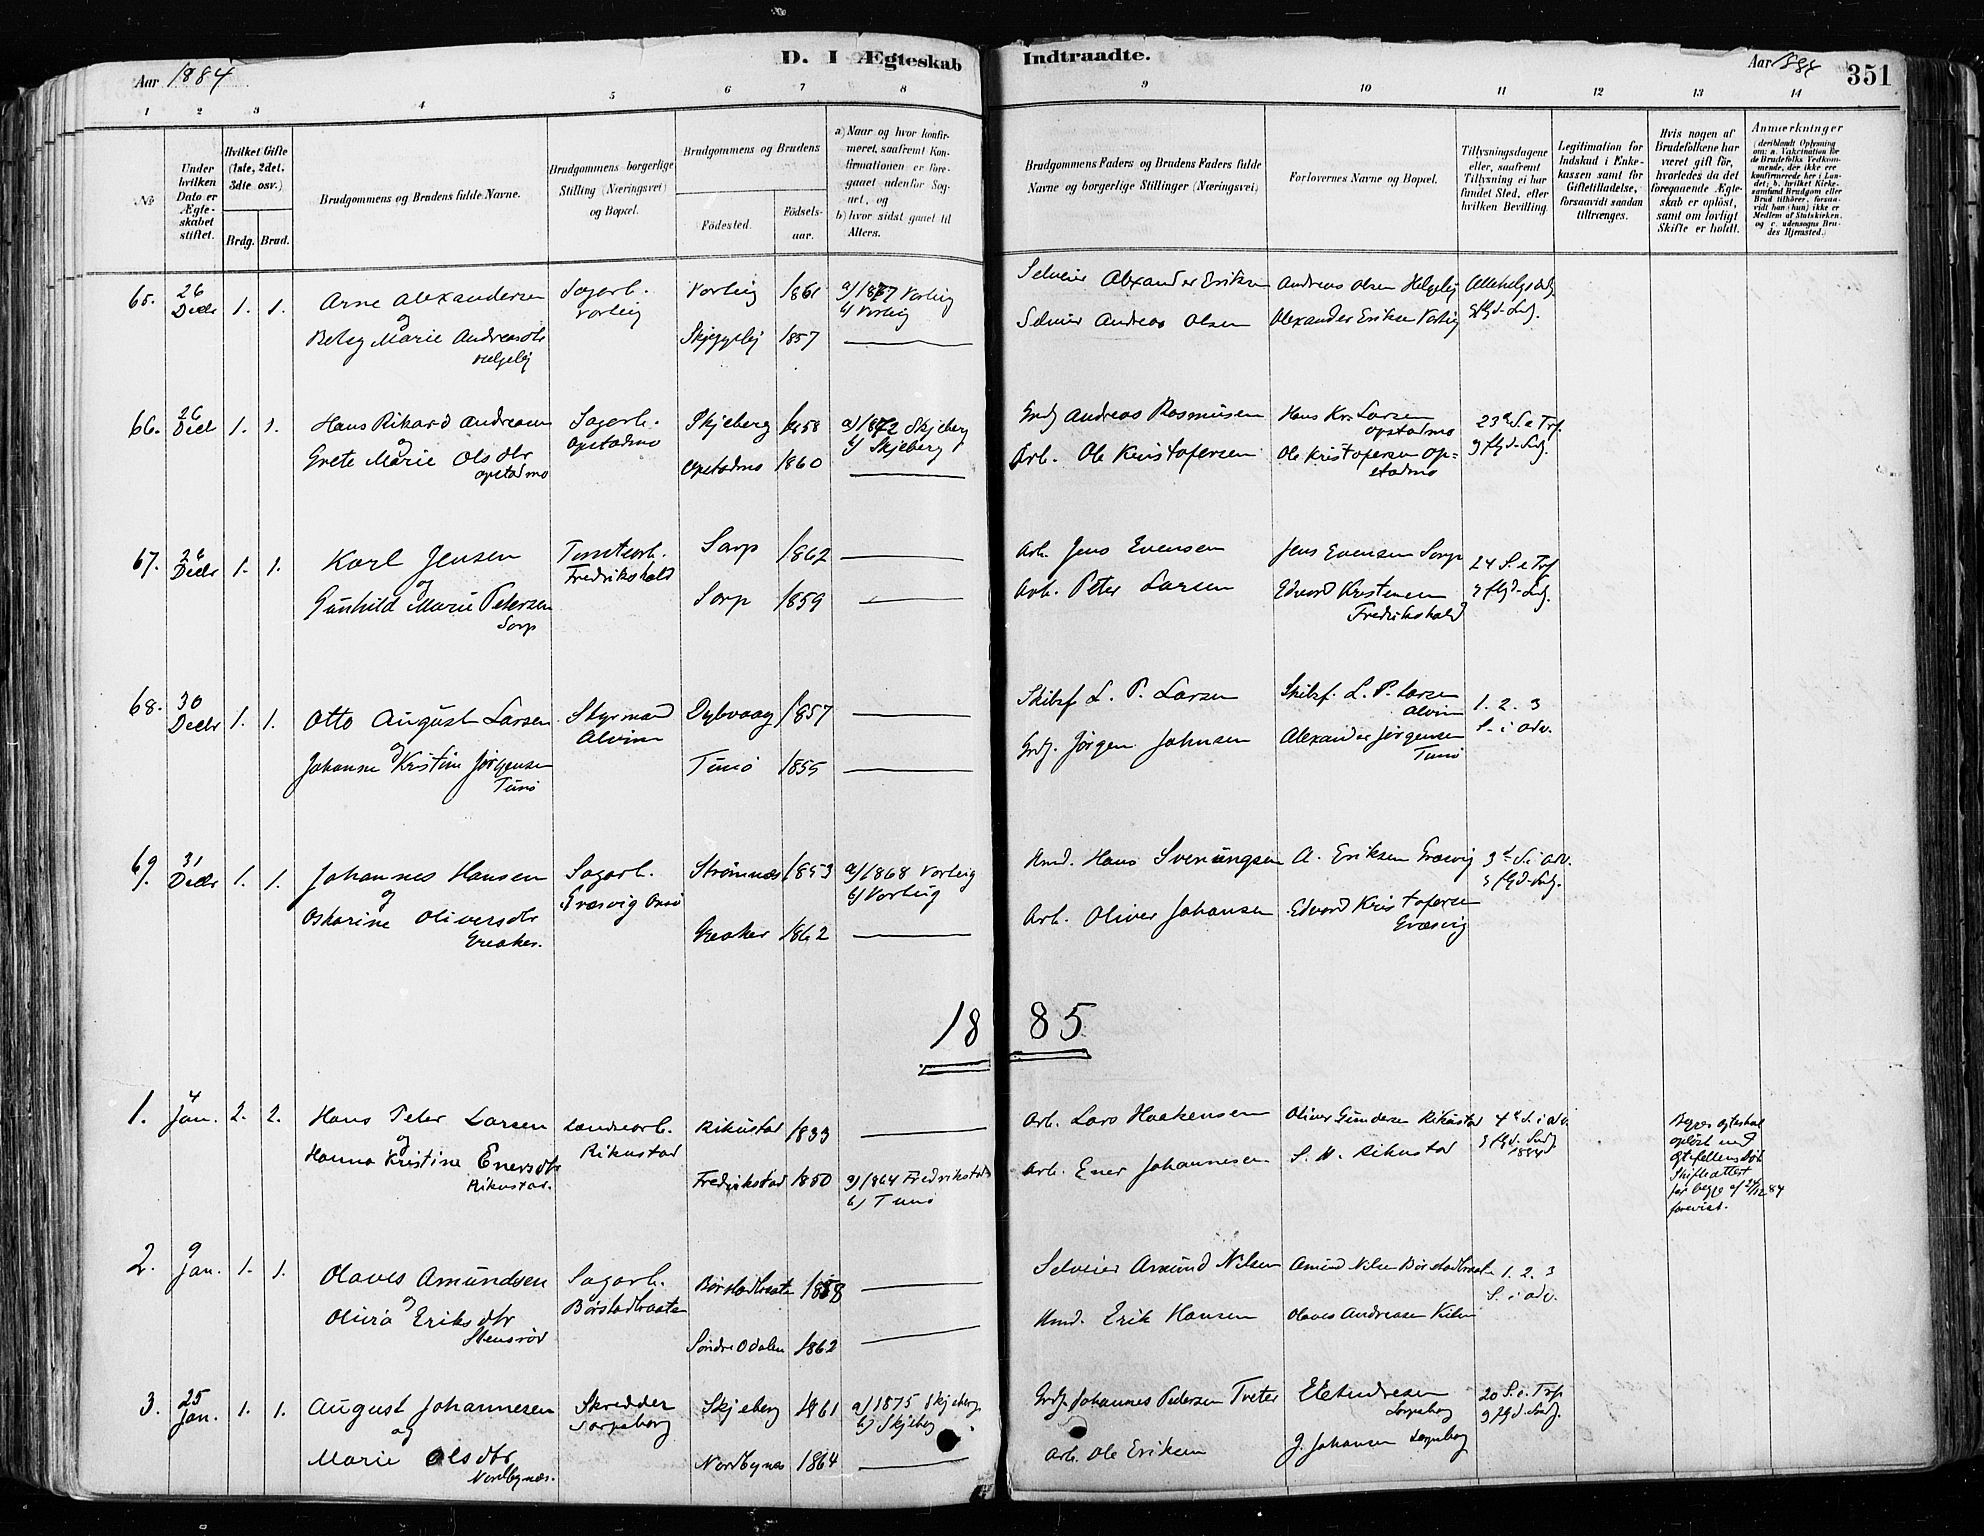 Aar 1884
D. I Ægteskab Indtraadte.
Aar 1884 351
1 2 3 4 5 6 7 8 9 10 11 12 13 14
No
Under hvilken Dato er Ægteskabet stiftet.
Hvilket Gifte (1ste, 2det, 3die osv.)
Brdg. Brud.
Brudgommens og Brudens fulde Navne.
Brudgommens borgerlige Stilling (Næringsvei) og Bopæl.
Brudgommens og Brudens
Fødested.
Fødsels-aar.
a) Naar og hvor konfirmeret, saafremt Konfirmationen er foregaaet udenfor Sognet, og
b) hvor sidst gaaet til Alters.
Brudgommens Faders og Brudens Faders fulde Navne og borgerlige Stillinger (Næringsvei)
Forlovernes Navne og Bopæl.
Tillysningsdagene eller, saafremt Tillysning ei har fundet Sted, efter hvilken Bevilling.
Legitimation for Indskud i Enkekassen samt for Giftetilladelse, forsaavidt saadan tiltrænges.
Hvis nogen af Brudefolkene har været gift før, hvorledes da det foregaaende Ægteskab er opløst, samt om lovligt Skifte er holdt.
Anmærkninger
65. 26 Decbr 1. 1. Arne Alexandersen Sagarb. Vorleig Vorleig 1861 a) 1877 Vorleig b) Vorleig Selveier Alexander Eriksen Andreas Olsen Helgelej
og
Betsy Marie Andreasdtr Helgelej Skjeggelej 1857 Selveier Andreas Olsen Alexander Eriksen Vorleig
66. 26 Decb 1. 1. Hans Rikard Andreasen Sagarb. Opstadmo Skjeberg 1858 a) 1872 Skjeberg b) Skjeberg Grdj. Andreas Rasmusen Hans Kr. Larsen Opstadmo 23d S. e Trf.
og
Grete Marie Olsdtr Opstadmo Opstadmo 1860 Arb. Ole Kristofersen Ole Kristofersen Opstadmo
67. 26 Decbr 1. 1. Karl Jensen Tomtearb. Fredrikshald Sarp 1862 Arb. Jens Evensen Jens Evensen Sarp 24 S. e Trf
og
Gunhild Marie Petersen Sarp Sarp 1859 Arb. Peter Larsen Edvard Kristensen Fredrikshald
68. 30 Decbr 1. 1. Otto August Larsen Styrmand Alvim Dybvaag 1857 Skibsf. L. P. Larsen Skibsf. L. P. Larsen Alvim 1. 2. 3 S. i adv.
og
Johanne Kristine Jørgensen Tunø Tunø 1855 Grdj. Jørgen Johnsen Alexander Jørgensen Tunø
69. 31 Decbr 1. 1. Johannes Hansen Sagarb. Græsvig Onsø Strømnæs 1853 a) 1868 Vorleig b) Vorleig Hmd. Hans Svenungsen A. Eriksen Græsvig 3d S. i adv.
og
Oskarine Oliversdtr Greaker. Greaker 1862 Arb. Oliver Johansen Edvard Kristofersen Græsvig
18 85
1. 4 Jan. 2. 2. Hans Peter Larsen Landarb. Rikustad Rikustad 1833 Arb. Lars Haakensen Oliver Gundersen Rikustad 4d S. i adv. 1884
og
Hanna Kristine Enersdtr Rikustad. Fredrikstad 1850 a) 1864 Fredrikstad b) Tunø Arb. Ener Johannesen S. M. Rikustad
Begges Ægteskab opløst ved Ægtefellens Død Skifteattest for begge af 24/12 84 forevist.
2. 9 Jan. 1. 1. Olaves Amundsen Sagarb. Børstadbraaten Børstadbraaten 1858 Selveier Amund Nilsen Amund Nilsen Børstadbraaten 1. 2. 3 S. i adv.
og
Olivia Eriksdtr Stensrød Søndre Odalen 1862 Hmd. Erik Hansen Olaves Andreasen
3. 25 Jan. 1. 1. August Johannesen Skredder Sarpsborg Skjeberg 1861 a) 1875 Skjeberg. b) Skjeberg Grdj. Johannes Pedersen Tveter Andresen Sarpsborg 20 S. e. Trf.
og
Marie Olsdtr Nordbynæs. Nordbynæs 1864 Arb. Ole Eriksen J. Johansen Sarpsborg